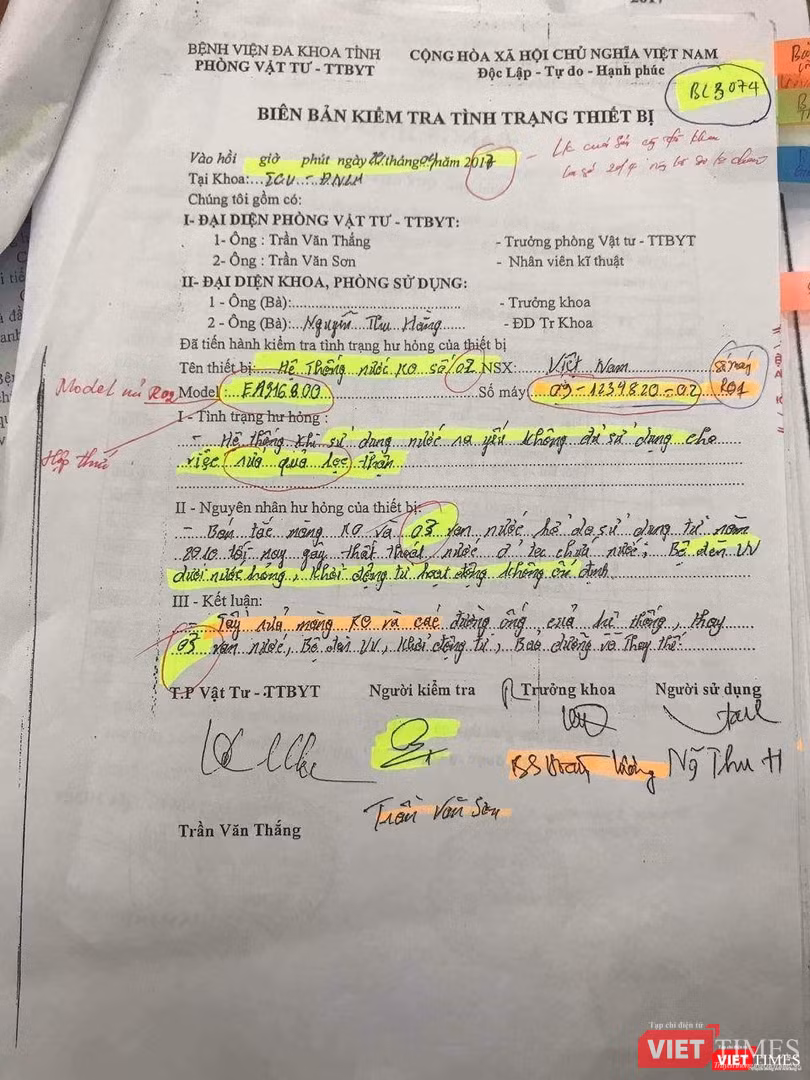 2017
BỆNH VIỆN ĐA KHOA TỈNH
PHÒNG VẬT TƯ - TTBYT
CỘNG HÒA XÃ HỘI CHỦ NGHĨA VIỆT NAM
Độc Lập - Tự do - Hạnh phúc
BL 3074
BIÊN BẢN KIỂM TRA TÌNH TRẠNG THIẾT BỊ
Vào hồi giờ phút ngày 20 tháng 04 năm 2017
Tại Khoa:... ICU - ĐNLM
Chúng tôi gồm có:
I- ĐẠI DIỆN PHÒNG VẬT TƯ - TTBYT:
1- Ông : Trần Văn Thắng - Trưởng phòng Vật tư - TTBYT
2- Ông : Trần Văn Sơn - Nhân viên kĩ thuật
II- ĐẠI DIỆN KHOA, PHÒNG SỬ DỤNG:
1 - Ông (Bà):............ - Trưởng khoa
2 - Ông (Bà): Nguyễn Thu Hằng - ĐD Tr Khoa
Đã tiến hành kiểm tra tình trạng hư hỏng của thiết bị
Tên thiết bị: Hệ Thống nước RO số 02 NSX: Việt Nam
Số máy RO1
Model : EA916800 Số máy: 09-1239820-02
Model
Hấp thu
I - Tình trạng hư hỏng :
- Hệ thống khi sử dụng nước ra yếu không đủ sử dụng cho
việc rửa quả lọc thận
II - Nguyên nhân hư hỏng của thiết bị:
- Bán tắc màng RO và 03 van nước, hở do sử dụng từ năm
2010 tới nay gây thất thoát nước ở tec chứa nước, Bộ đèn UV
dưới nước hỏng, khởi động từ hoạt động không ổn định
III - Kết luận:
- Tẩy rửa màng RO và các đường ống của hệ thống, thay
03 van nước, Bộ đèn UV, khởi động từ, Bảo dưỡng và Thay thế.
T.P Vật Tư -TTBYT
Người kiểm tra
Trưởng khoa
Người sử dụng
Ng Thu H
Trần Văn Sơn
Trần Văn Thắng
Tạp chí điện tử
VIETTIMES
VIETTIMES